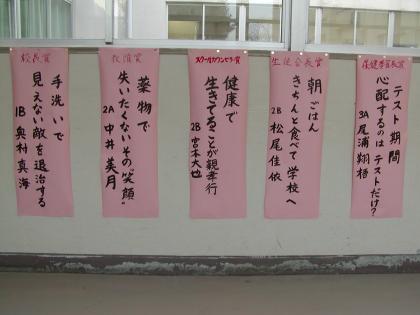 保健委員長賞
テスト期間
心配するのは テストだけ?
3A 尾浦翔梧
生徒会長賞
朝ごはん
きちんと食べて 学校へ
2B 松尾佳依
スクールカウンセラー賞
健康で
生きてることが親孝行
2B 宮本大也
教頭賞
薬物で
失いたくないその"笑顔"
2A 中井美月
校長賞
手洗いで
見えない敵を退治する
1B 奥村真海